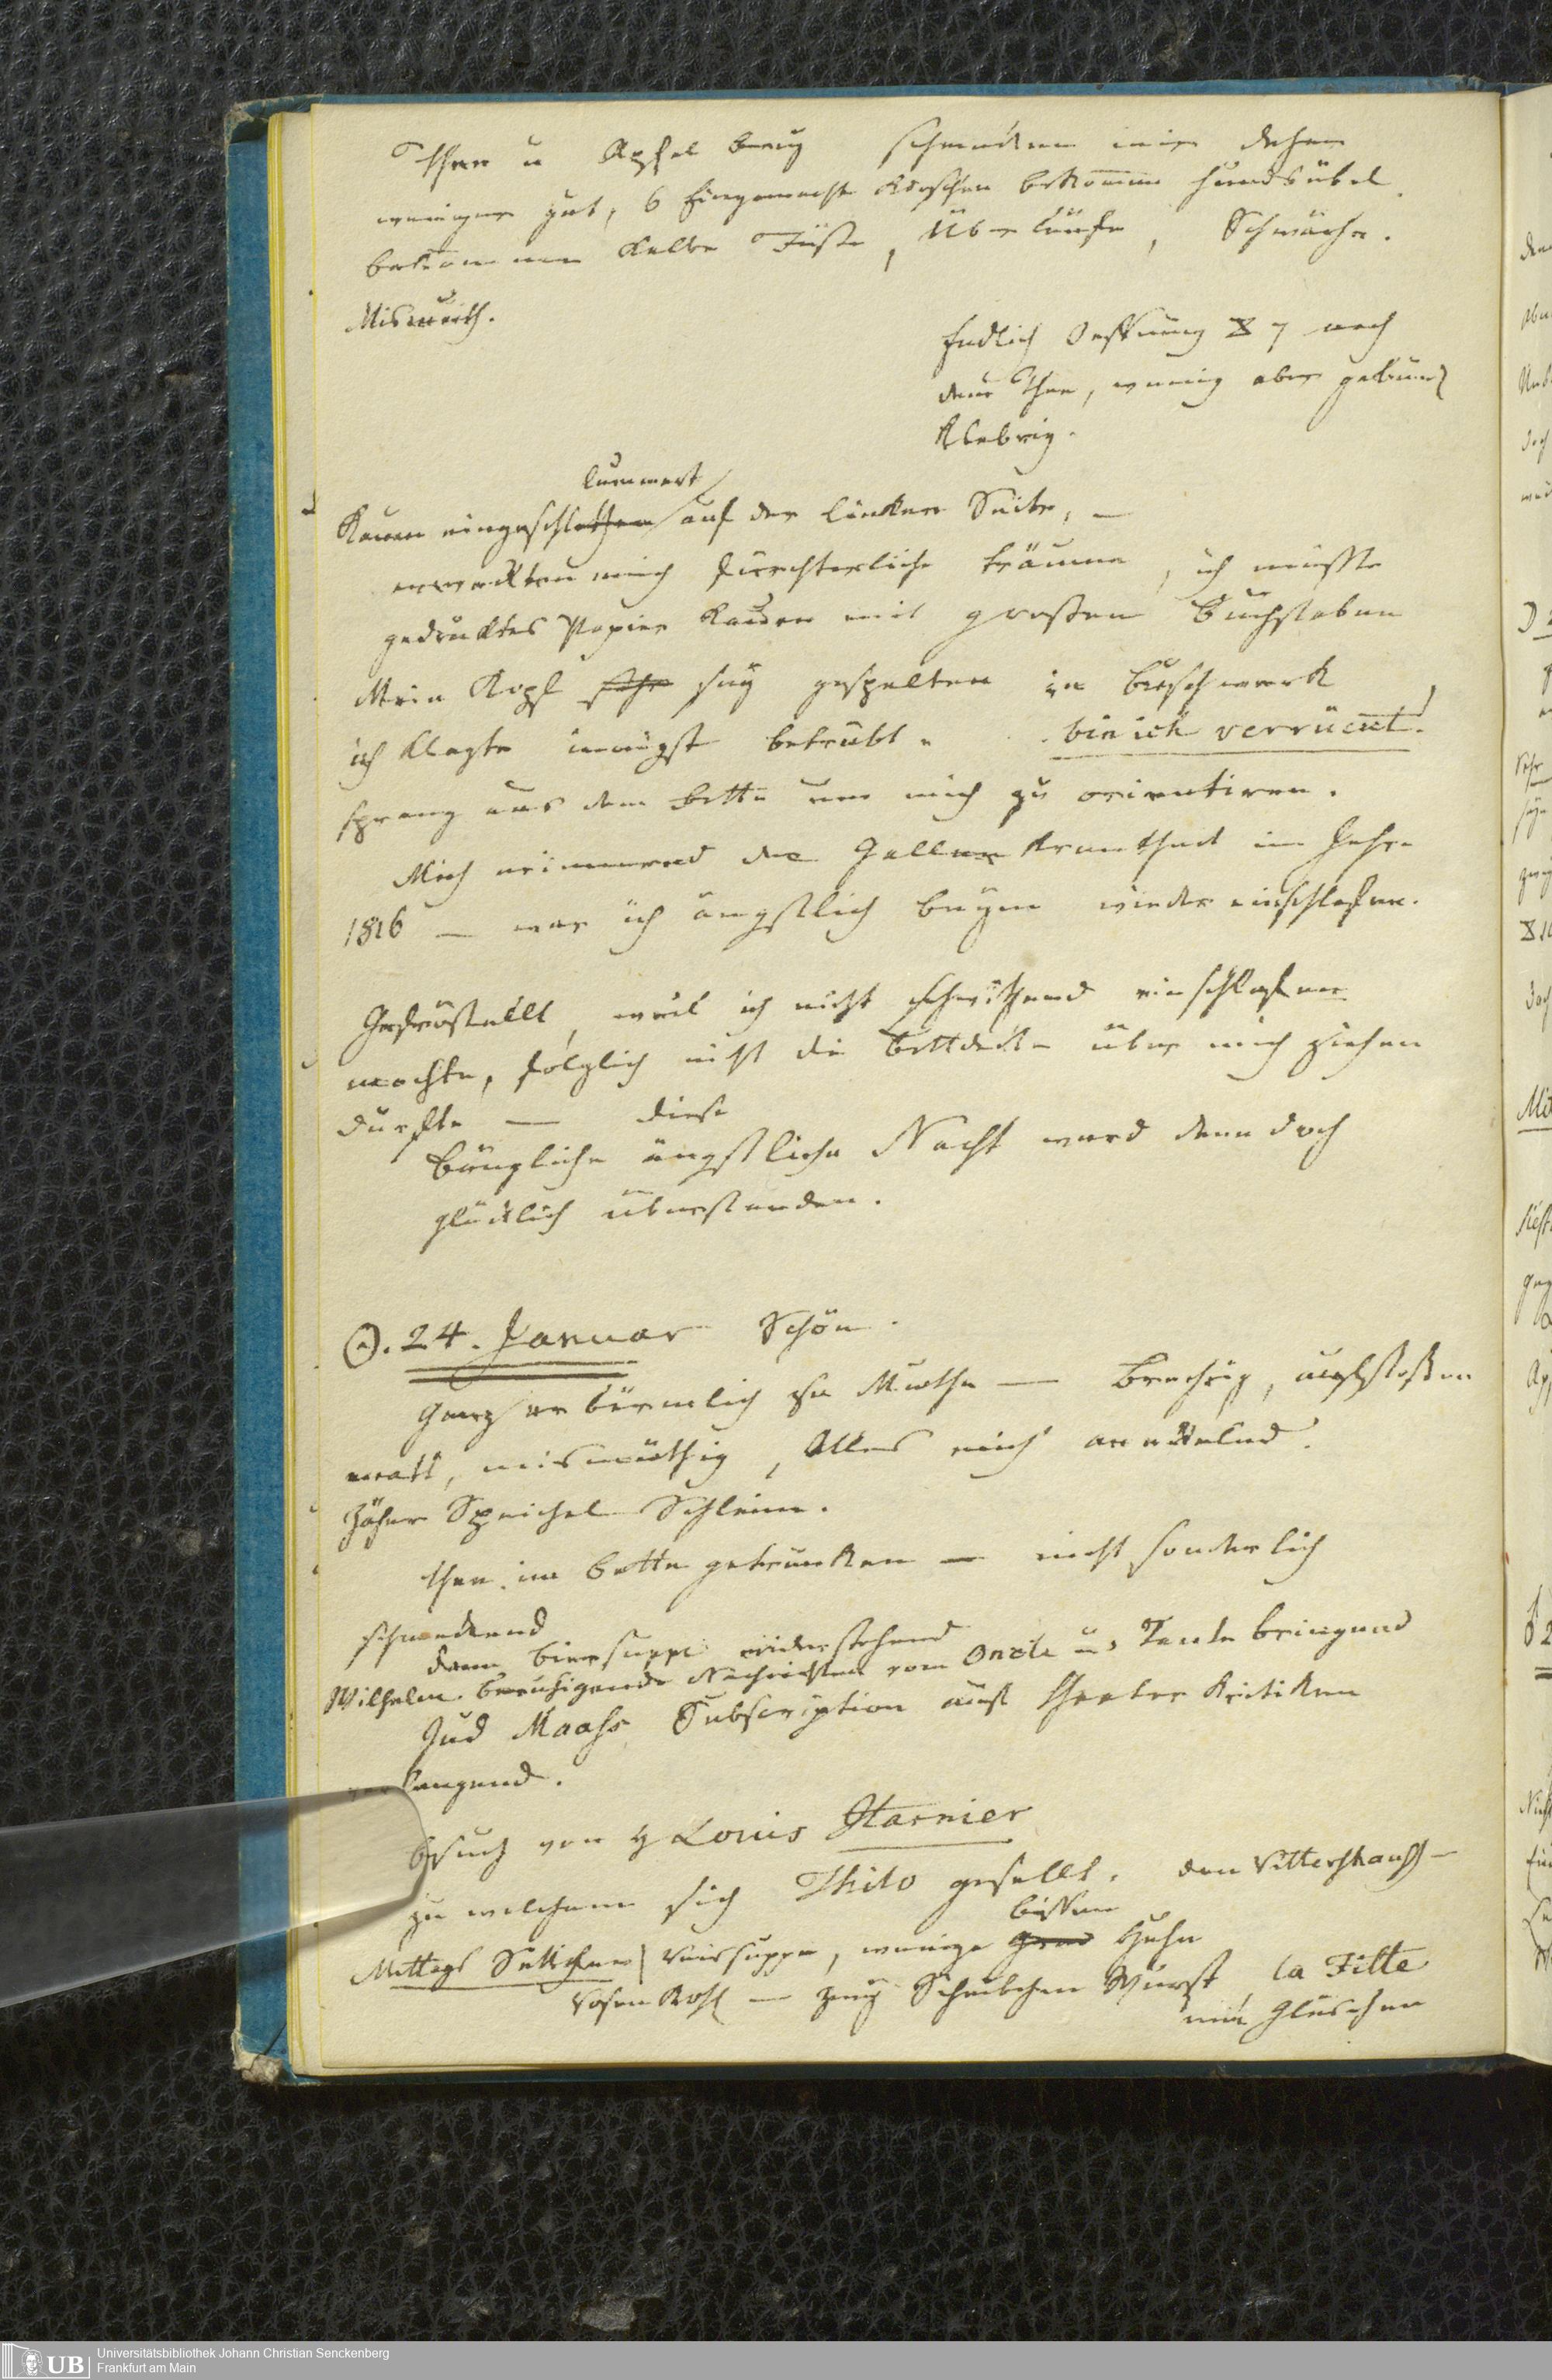 Thee u Apfel schmecken mir daher
weniger gut, 6 Eingemachte Kirschen bekommen hundsübel
bekommen kalte Füße, Überläufe, Schwäche.
Mismuth.
Endlich Oeffnung 7 nach
dem Thee, wenig aber gebund
klebrig.
lummert
Kaum eingeschlafen auf der linken Seite, —
erweckten mich fürchterliche träume, ich müsste
gedrucktes Papier kauen mit großen Buchstaben
Mein Kopf sehe sey gespalten in Buschwerk
ich klagte innigst betrübt bin ich verrückt.
sprang aus dem Bette um mich zu orientiren.
Mich erinnernd der Gallen krankheit im Jahre
1816 — war ich ängstlich beym wieder einschlafen.
Gefröstellt, weil ich nicht schwitzend einschlafen
mochte, folglich nicht die Bettdecke über mich ziehen
durfte — diese
bängliche ängstliche Nacht ward denn doch
glücklich überstanden.
☉. 24. Januar Schön.
Ganz erbärmlich zu Muthe — Brechrig, aufstoßen
matt, mismüthig, Alles mich anekelnd.
Zäher Speichel Schleim.
thee im Bette getrunken — nicht sonderlich
schmeckend
dann Biersuppe widerstehend
Wilhelm beruhigende Nachrichten vom Oncle u Tante bringend
Jud Maass Subscription auf Theater Kritiken
verlangend.
Besuch von H Louis Harnier
zu welchem sich Thilo gesellt. den
bissen
Mittags Süttchen Reissuppe, wenige Huhn
Rosenkohl — zwey Scheibchen Wurst, la Fitte
ein Gläschen
Universitätsbibliothek Johann Christian Senckenberg
Frankfurt am Main
UB